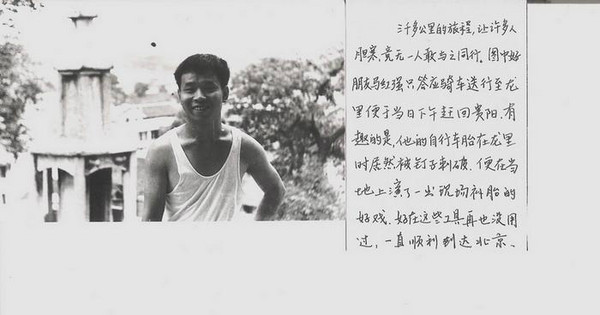 三千多公里的旅程，让许多人
胆寒，竟无一人敢与之同行。图中好
朋友马红强只答应骑车送行至龙
里便于当日下午赶回贵阳。有
趣的是，他的自行车胎在龙里
时居然被钉子刺破，便在当
地上演了一出现场补胎的
好戏。好在这些工具再也没用
过，一直顺利到达北京。